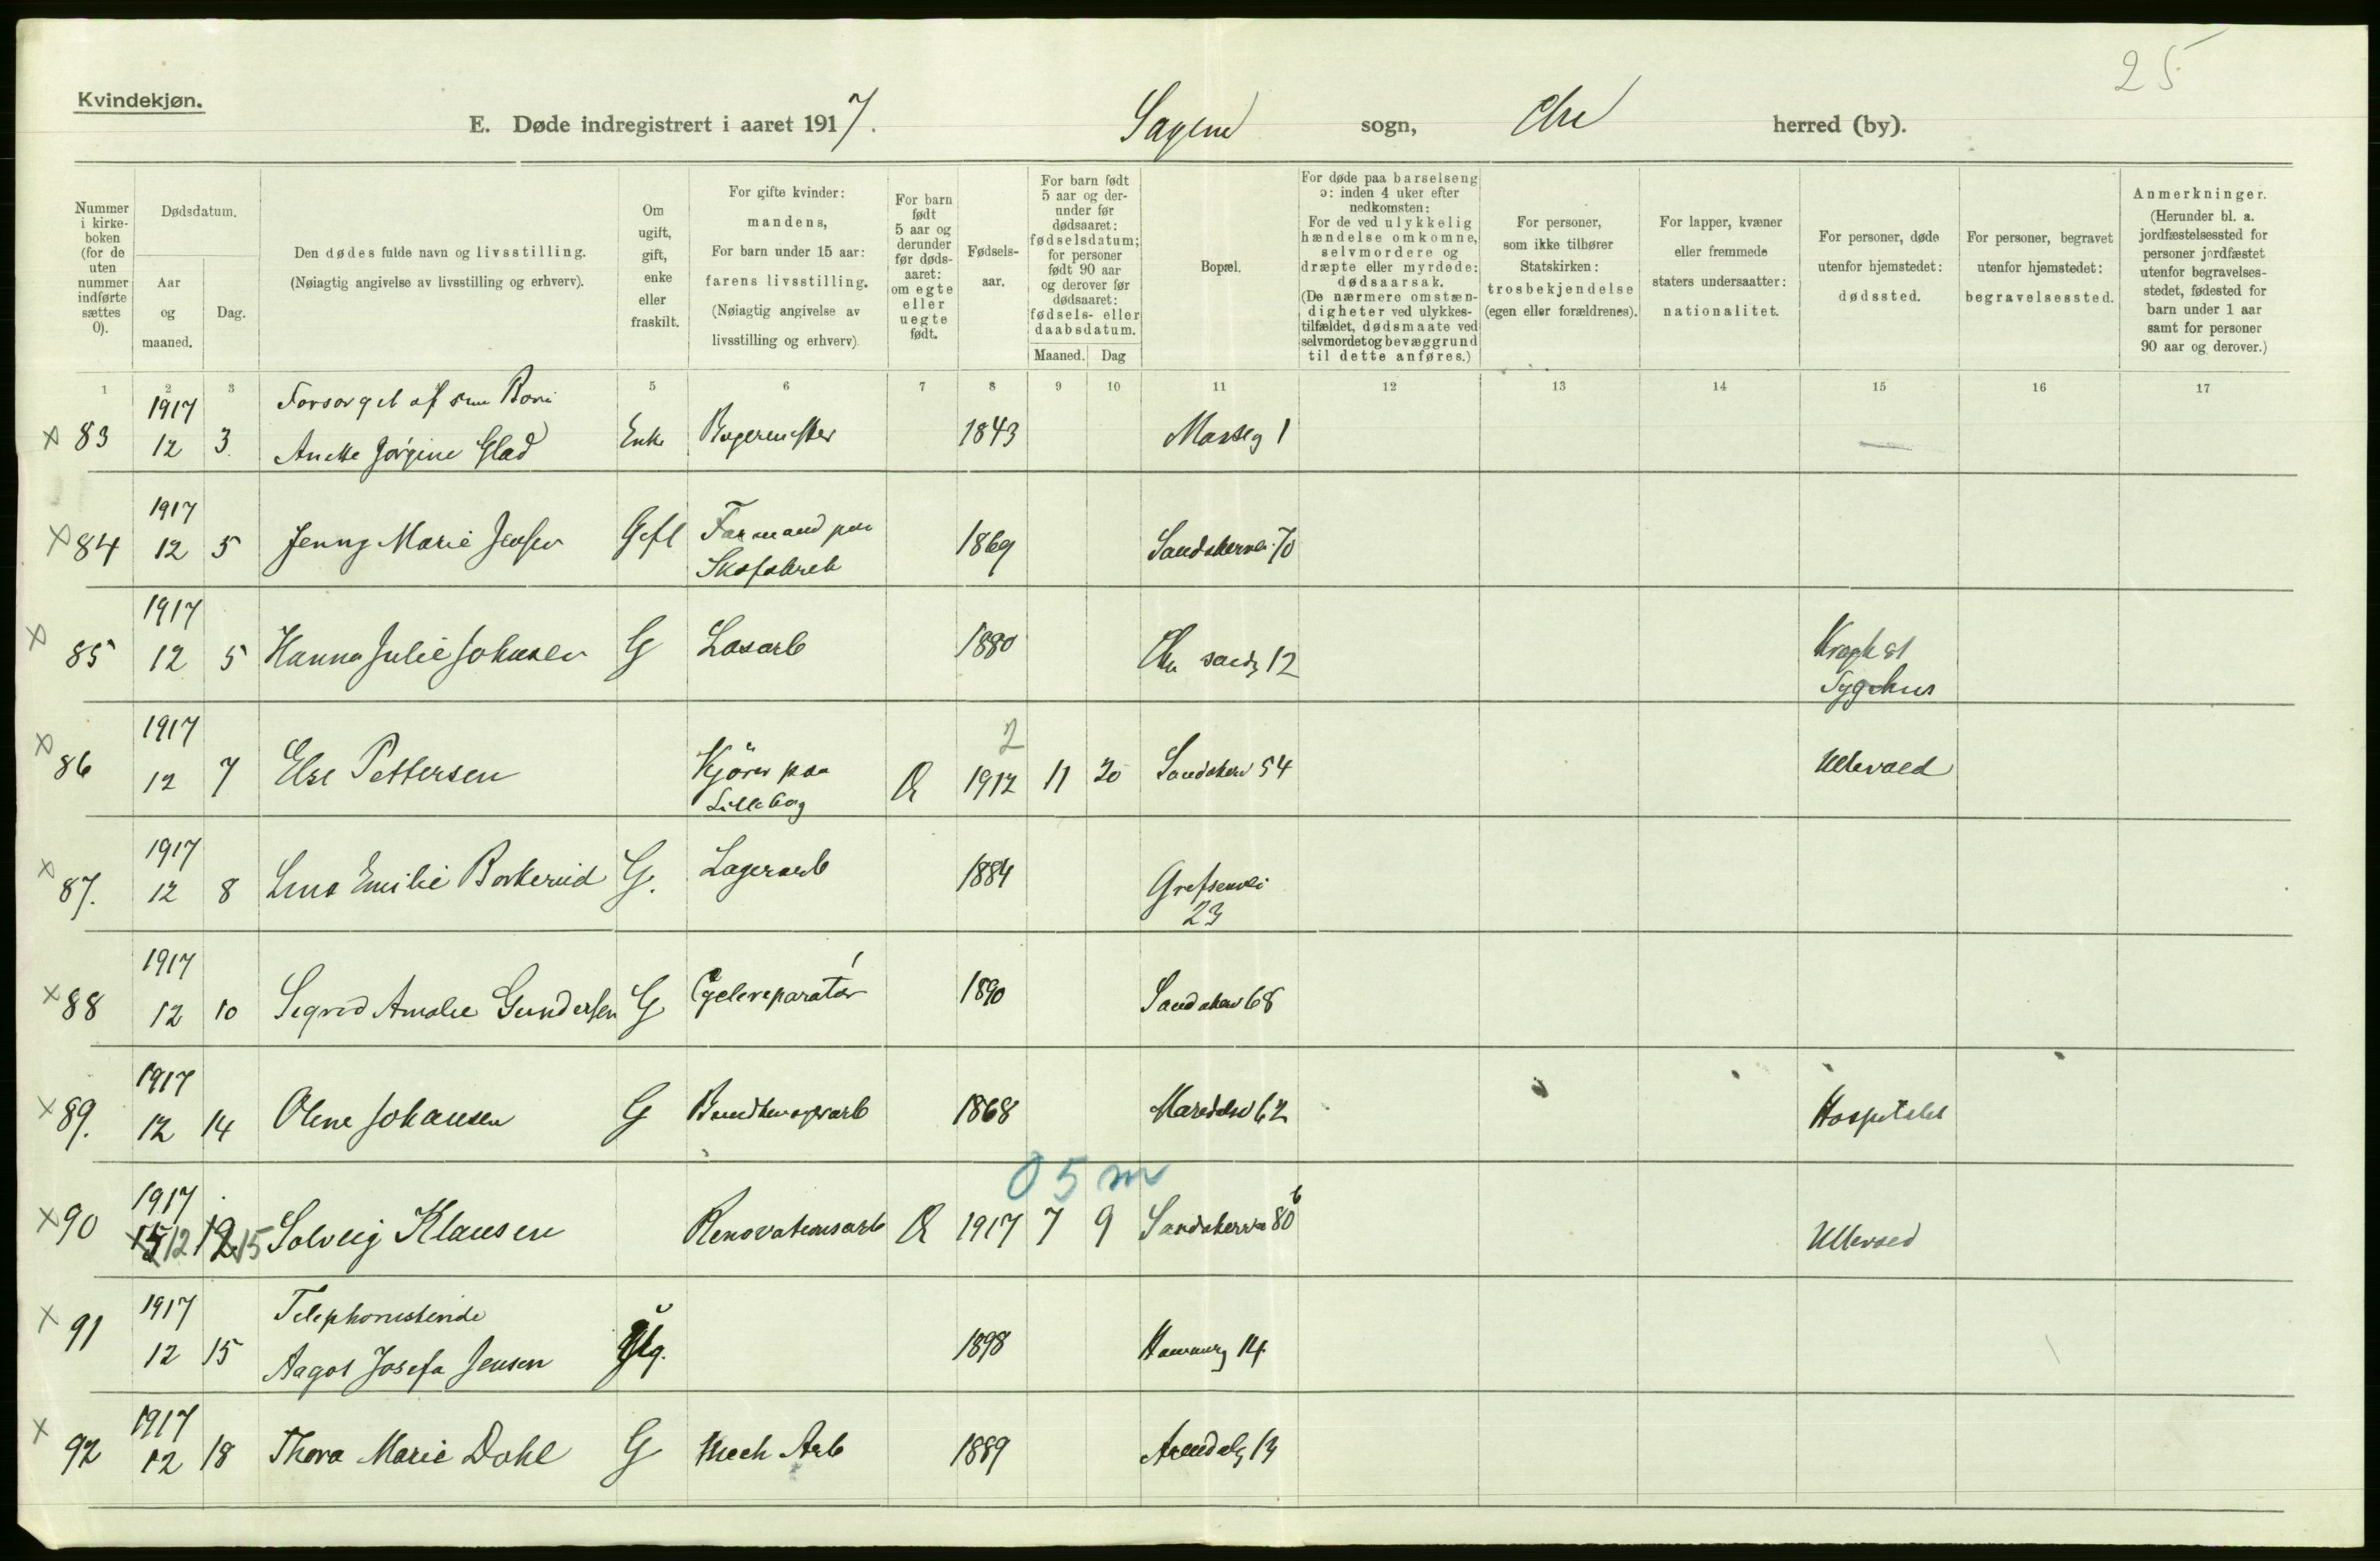 25
Kvindekjøn.
E. Døde indregistrert i aaret 1917. Sagene sogn, Chra herred (by).
Nummer i kirke-boken (for de uten nummer indførte sættes 0).
Dødsdatum.
Aar og maaned.
Dag.
Den dødes fulde navn og livsstilling.
(Nøiagtig angivelse av livsstilling og erhverv).
Om ugift, gift, enke eller fraskilt.
For gifte kvinder: mandens,
For barn under 15 aar: farens livsstilling.
(Nøiagtig angivelse av livsstilling og erhverv)
For barn født 5 aar og derunder før døds-aaret: om egte eller uegte født.
Fødsels-aar.
For barn født 5 aar og der-under før dødsaaret: fødselsdatum; for personer født 90 aar og derover før dødsaaret: fødsels- eller daabsdatum.
Maaned. Dag
Bopæl.
For døde paa barselseng ɔ: inden 4 uker efter nedkomsten:
For de ved ulykkelig hændelse omkomne, selvmordere og dræpte eller myrdede: dødsaarsak.
(De nærmere omstæn-digheter ved ulykkes-tilfældet, dødsmaate ved selvmordet og bevæggrund til dette anføres.)
For personer, som ikke tilhører Statskirken: trosbekjendelse (egen eller forældrenes).
For lapper, kvæner eller fremmede staters undersaatter: nationalitet.
For personer, døde utenfor hjemstedet: dødssted.
For personer, begravet utenfor hjemstedet: begravelsessted.
Anmerkninger.
(Herunder bl. a. jordfæstelsessted for personer jordfæstet utenfor begravelses-stedet, fødested for barn under 1 aar samt for personer 90 aar og derover.)
1 2 3 5 6 7 8 9 10 11 12 13 14 15 16 17
1917 Forsørget af sine Børn
x 83 12 3. Anette Jørgine Glad Enke 1843 1
1917
x 84 12 5 Jenny Marie Jensen Gift Formand paa Skofabrik 1869 Sandakervei 70
1917
x 85 12 5 Hanna Julie Johnsen G Løsarb 1880 12 Krogh st Sygehus
1917 2
x 86 12 7 Else Pettersen Kjører paa Lilleborg 1912 11 20 Sandakerv 54 Ullevaal
1917
x 87. 12 8 Emilie G. Lagerarb 1884 Grefsenvei 23
1917
x 88 12 10 Sigrid Amalie Gundersen G Cyclereparatør 1890 Sandakerv 68
1917
x 89. 12 14 Oline Johansen G 1868 Maridalsv 62 Hospitalet
0 5 m
1917
x 90 15 12 12 15 Solveig Klausen Renovationsarb 1917 7 9 Sandakervei 80 b Ullevaal
1917 Telephonistinde
x 91 12 15 Aagot Josefa Jensen Ug. 1898 14
1917
x 92 12 18 Thora Marie Dahl G Mech Arb 1889 Arendalsg 13